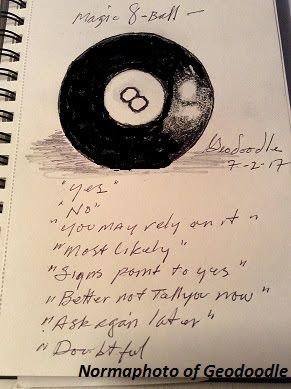 Magic 8-Ball -
8
Geodoodle
7-2-17
"Yes"
"No"
"You may rely on it"
"Most Likely"
"Signs point to yes"
"Better not Tell you now"
"Ask again later"
"Doubtful
Normaphoto of Geodoodle